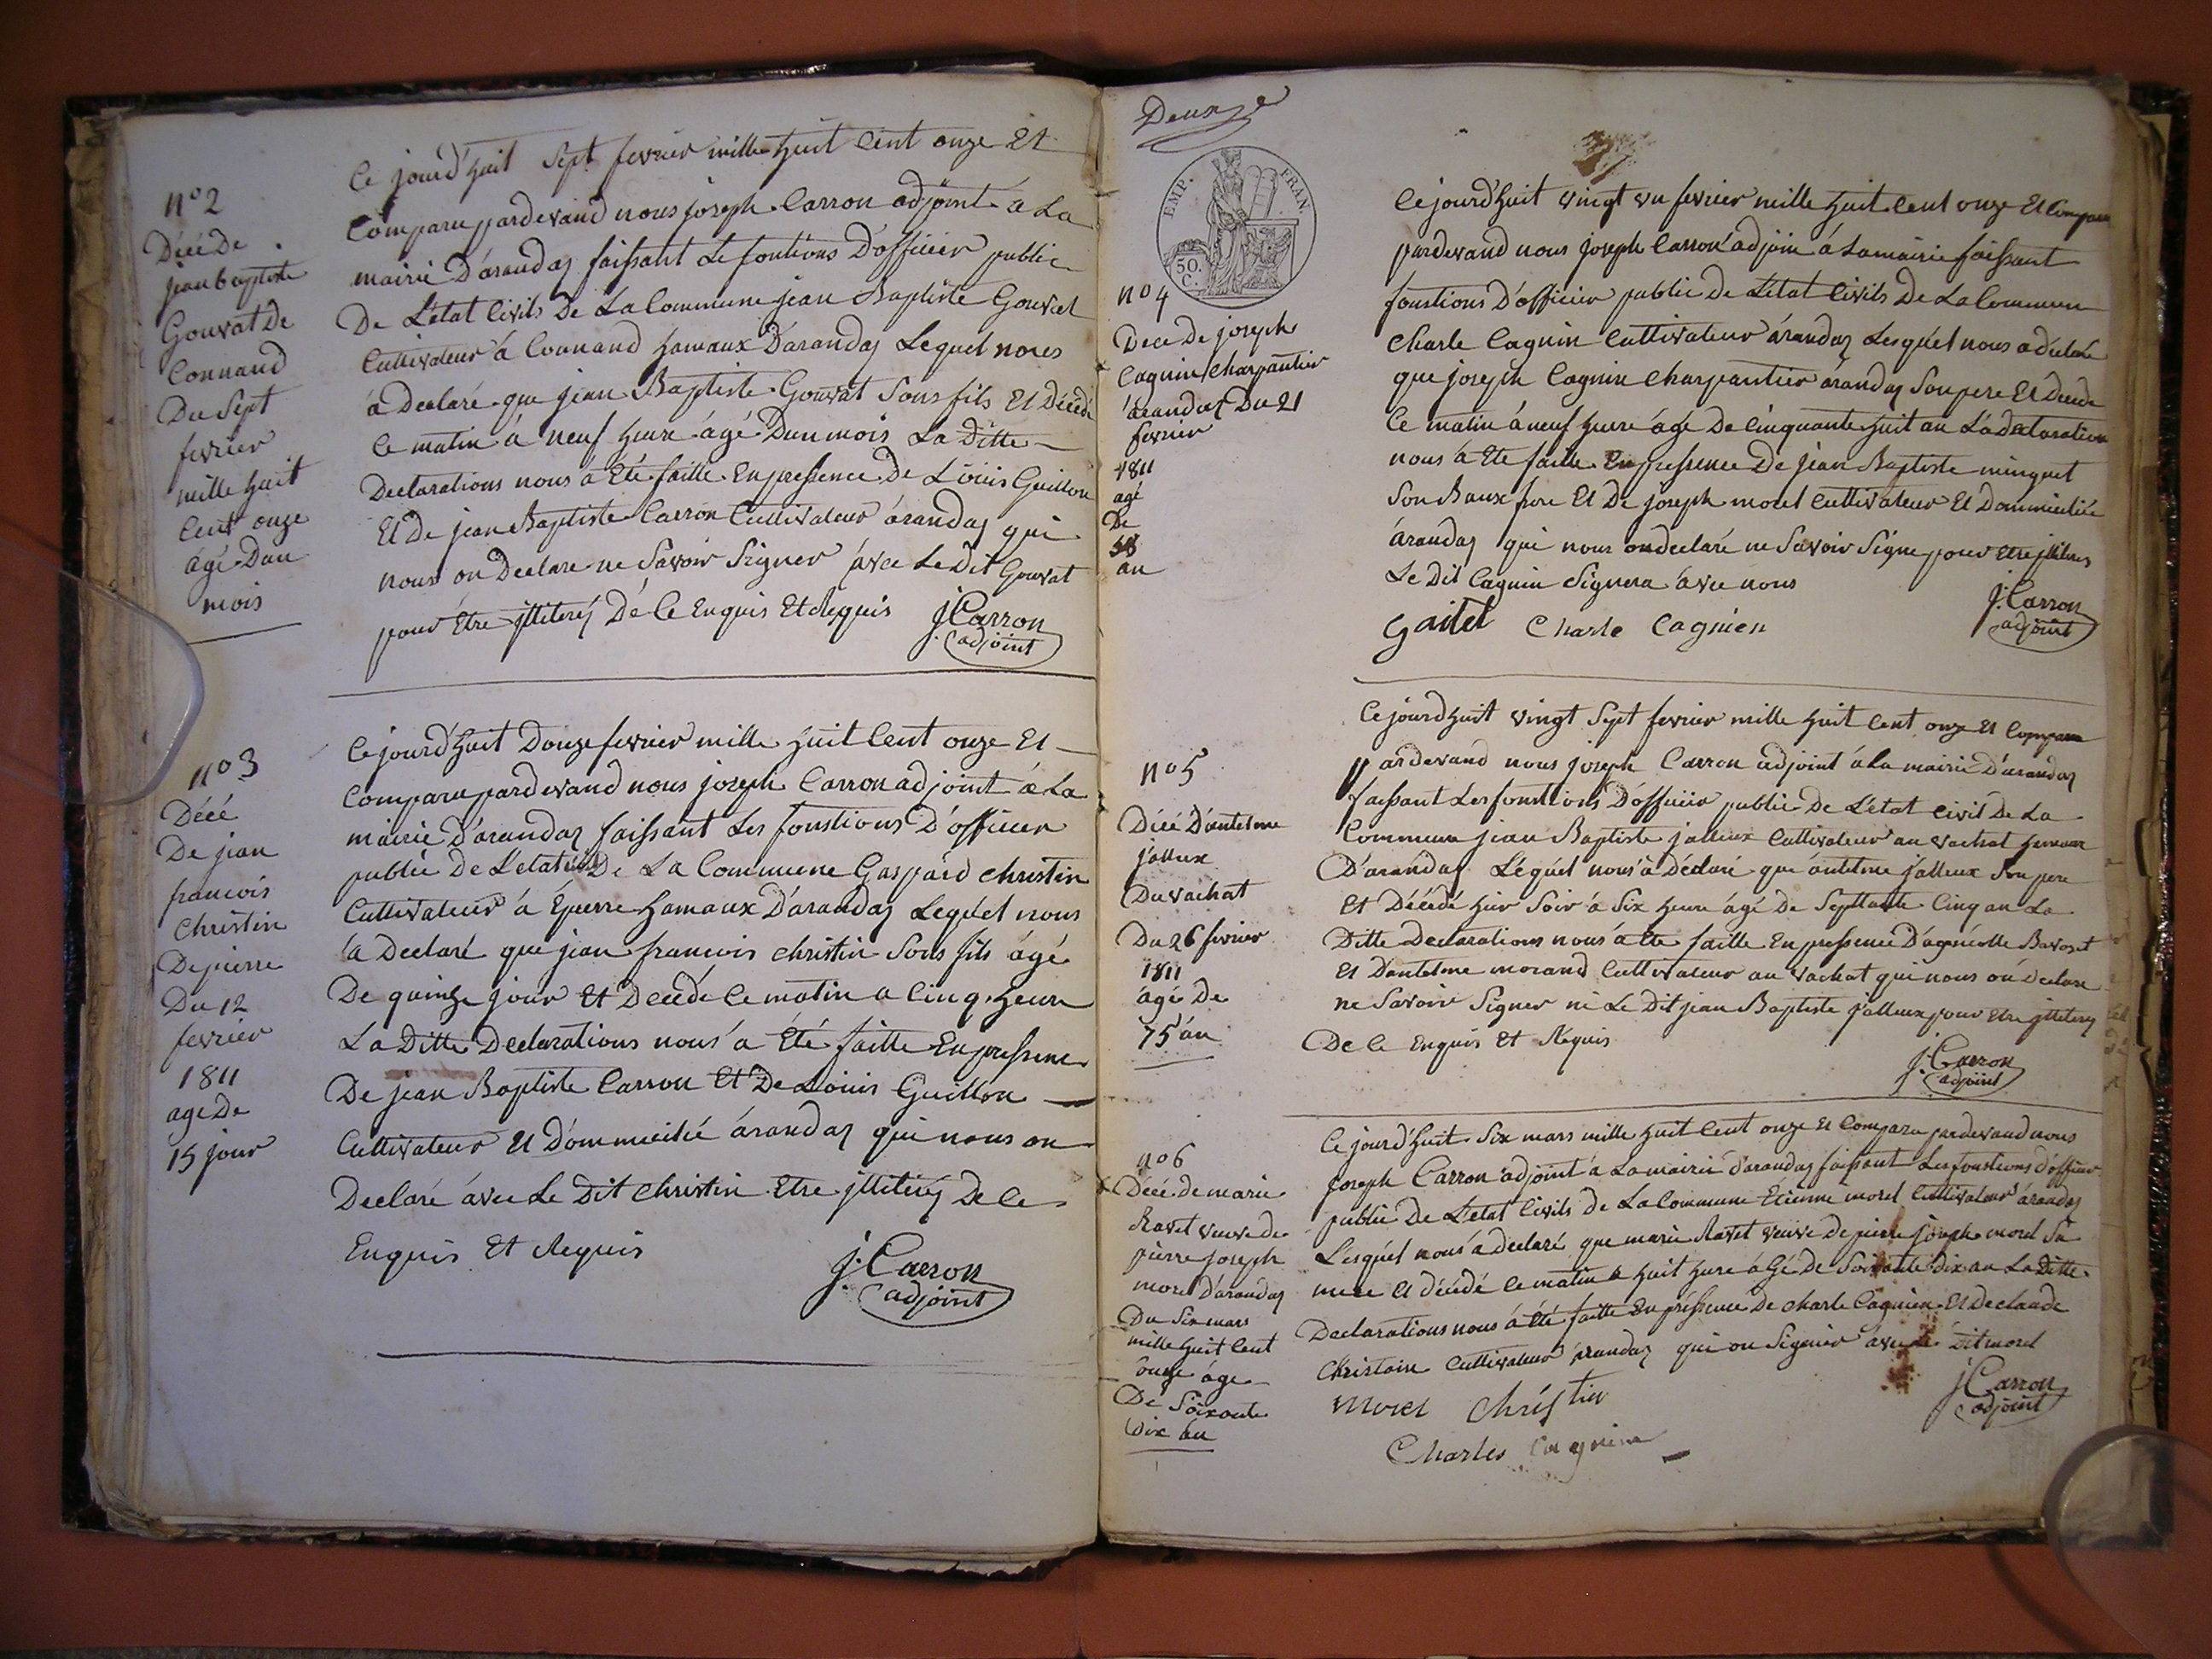 n° 2
Décé De
jean baptiste
Gouvat De
Connand
Du Sept
fevrier
mille huit
Cent onze
agé Dun
mois
Ce jourd'huit Sept fevrier mille huit Cent onze Et
Comparu pardevand nous joseph Carron adjoint à La
mairie D'arandas faissant Le fontions D'officier public
De L'état Civils De La Commune jean Baptiste Gouvat
Cultivateur à Connand hamaux D'arandas Lequel nous
à Declaré que jean Baptiste Gouvat Sons fils Et Décédé
Ce matin à neuf heure agé Dun mois La Ditte
Declarations nous à Eté faitte En pressence De Loüis Guillon
Et De jean Baptiste Carron Cultivateur àrandas qui
nous on Declare ne Savoir Signer avec Le Dit Gouvat
pour Etre jlliterés De Ce Enquis Et Requis
j. Carron
adjoint
n° 3
Décé
De jean
francois
Christin
De pierre
Du 12
fevrier
1811
age De
15 jour
Ce jourd'huit Douze fevrier mille huit Cent onze Et
Comparu pardevand nous joseph Carron adjoint à La
mairie D'arandas faissant Les fonstions D'officier
public De L'etat civils De La Commune Gaspard Christin
Cultivateur à Epierre hamaux D'arandas Lequel nous
à Declaré que jean francois christin Sons fils agé
De quinze jour Et Decédé Ce matin a Cinq heure
La Ditte Declarations nous à Eté faitte En pressence
De jean Baptiste Carron Et De Loüis Guillon
Cultivateur Et Dommicilié àrandas qui nous on
Declaré avec Le Dit Christin Etre jlliterés De Ce
Enquis Et Requis
j. Carron
adjoint
Deuxe
EMP. FRAN.
50.
C.
n° 4
Dece De joseph
Cagnin Charpantier
àrandas Du 21
fevrier
1811
agé
De
58
an
Ce jourd'huit vingt un fevrier mille huit Cent onze Et Comparu
pardevand nous joseph Carron adjoin à La mairie faissant
fonstions D'officier public De L'état Civils De La Commune
Charle Cagnin Cultivateur àrandas Lesquel nous a déclaré
que joseph Cagnin Charpantier àrandas Son pere Et Decede
Ce matin à neuf heure agé De Cinquante huit an La declaration
nous à Ete faitte En pressence De jean Baptiste minguet
Son Baux frere Et De joseph morel Cultivateur Et Dommiciliée
àrandas qui nous on declaré ne Savoir Signe pour etre jlliteres
Le Dit Cagnin Signera avec nous
Gaitet Charle Cagnien
j. Carron
adjoint
n° 5
Décé D'antelme
jalleux
Du vachat
Du 26 fevrier
1811
agé De
75 an
Ce jourd'huit vingt Sept fevrier mille huit Cent onze Et Comparu
pardevand nous joseph Carron adjoint à la mairie D'arandas
faissant Les fonstions D'officier public De L'état Civil De La
Commune jean Baptiste jalleux Cultivateur au vachat hamaux
D'arandas Lequel nous à Déclaré que antelme jalleux Son pere
Et Décédé hier Soir à Six heure agé De Septtante Cinq an La
Ditte Declarations nous à Ete faitte En pressence D'agnicolle Bavozet
Et D'antelme morand Cultivateur au vachat qui nous on Declare
ne Savoir Signer ni Le Dit jean Baptiste jalleux pour Etre jlliteres
De Ce Enquis Et Requis
j. Carron
adjoint
n° 6
Décé de marie
Ravet veuve de
pierre joseph
morel D'arandas
Du Six mars
mille huit Cent
onze age
De Soixante
Dix an
Ce jourd'huit Six mars mille huit Cent onze Et Comparu pardevand nous
joseph Carron adjoint à La mairie d'arandas faissant Les fonstions d'officier
public De L'etat Civils de La Commune Etienne morel Cultivateur àrandas
Lesquel nous à declaré que marie Ravet veuve De pierre joseph morel Sa
mere Et décédé Ce matin à huit hure à Gé de Soixante dix an La Ditte
Declarations nous à été faitte En préssence De Charle Cagnien Et De claude
Christain Cultivateur àrandas qui on Signier avec le Dit morel
j. Carron
adjoint
morel Christin
Charles Cagnien